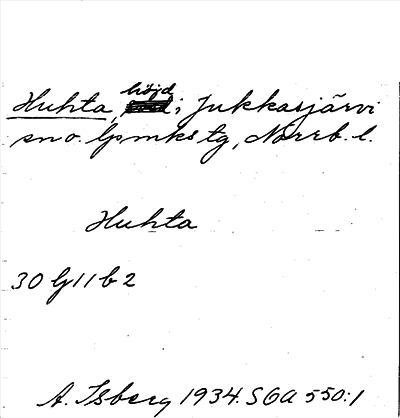 Huhta, höjd i Jukkasjärvi
sn o. lpmks tg, Norrb. l.
Huhta
30 G 11 b 2
A. Isberg 1934. SOA 550:1